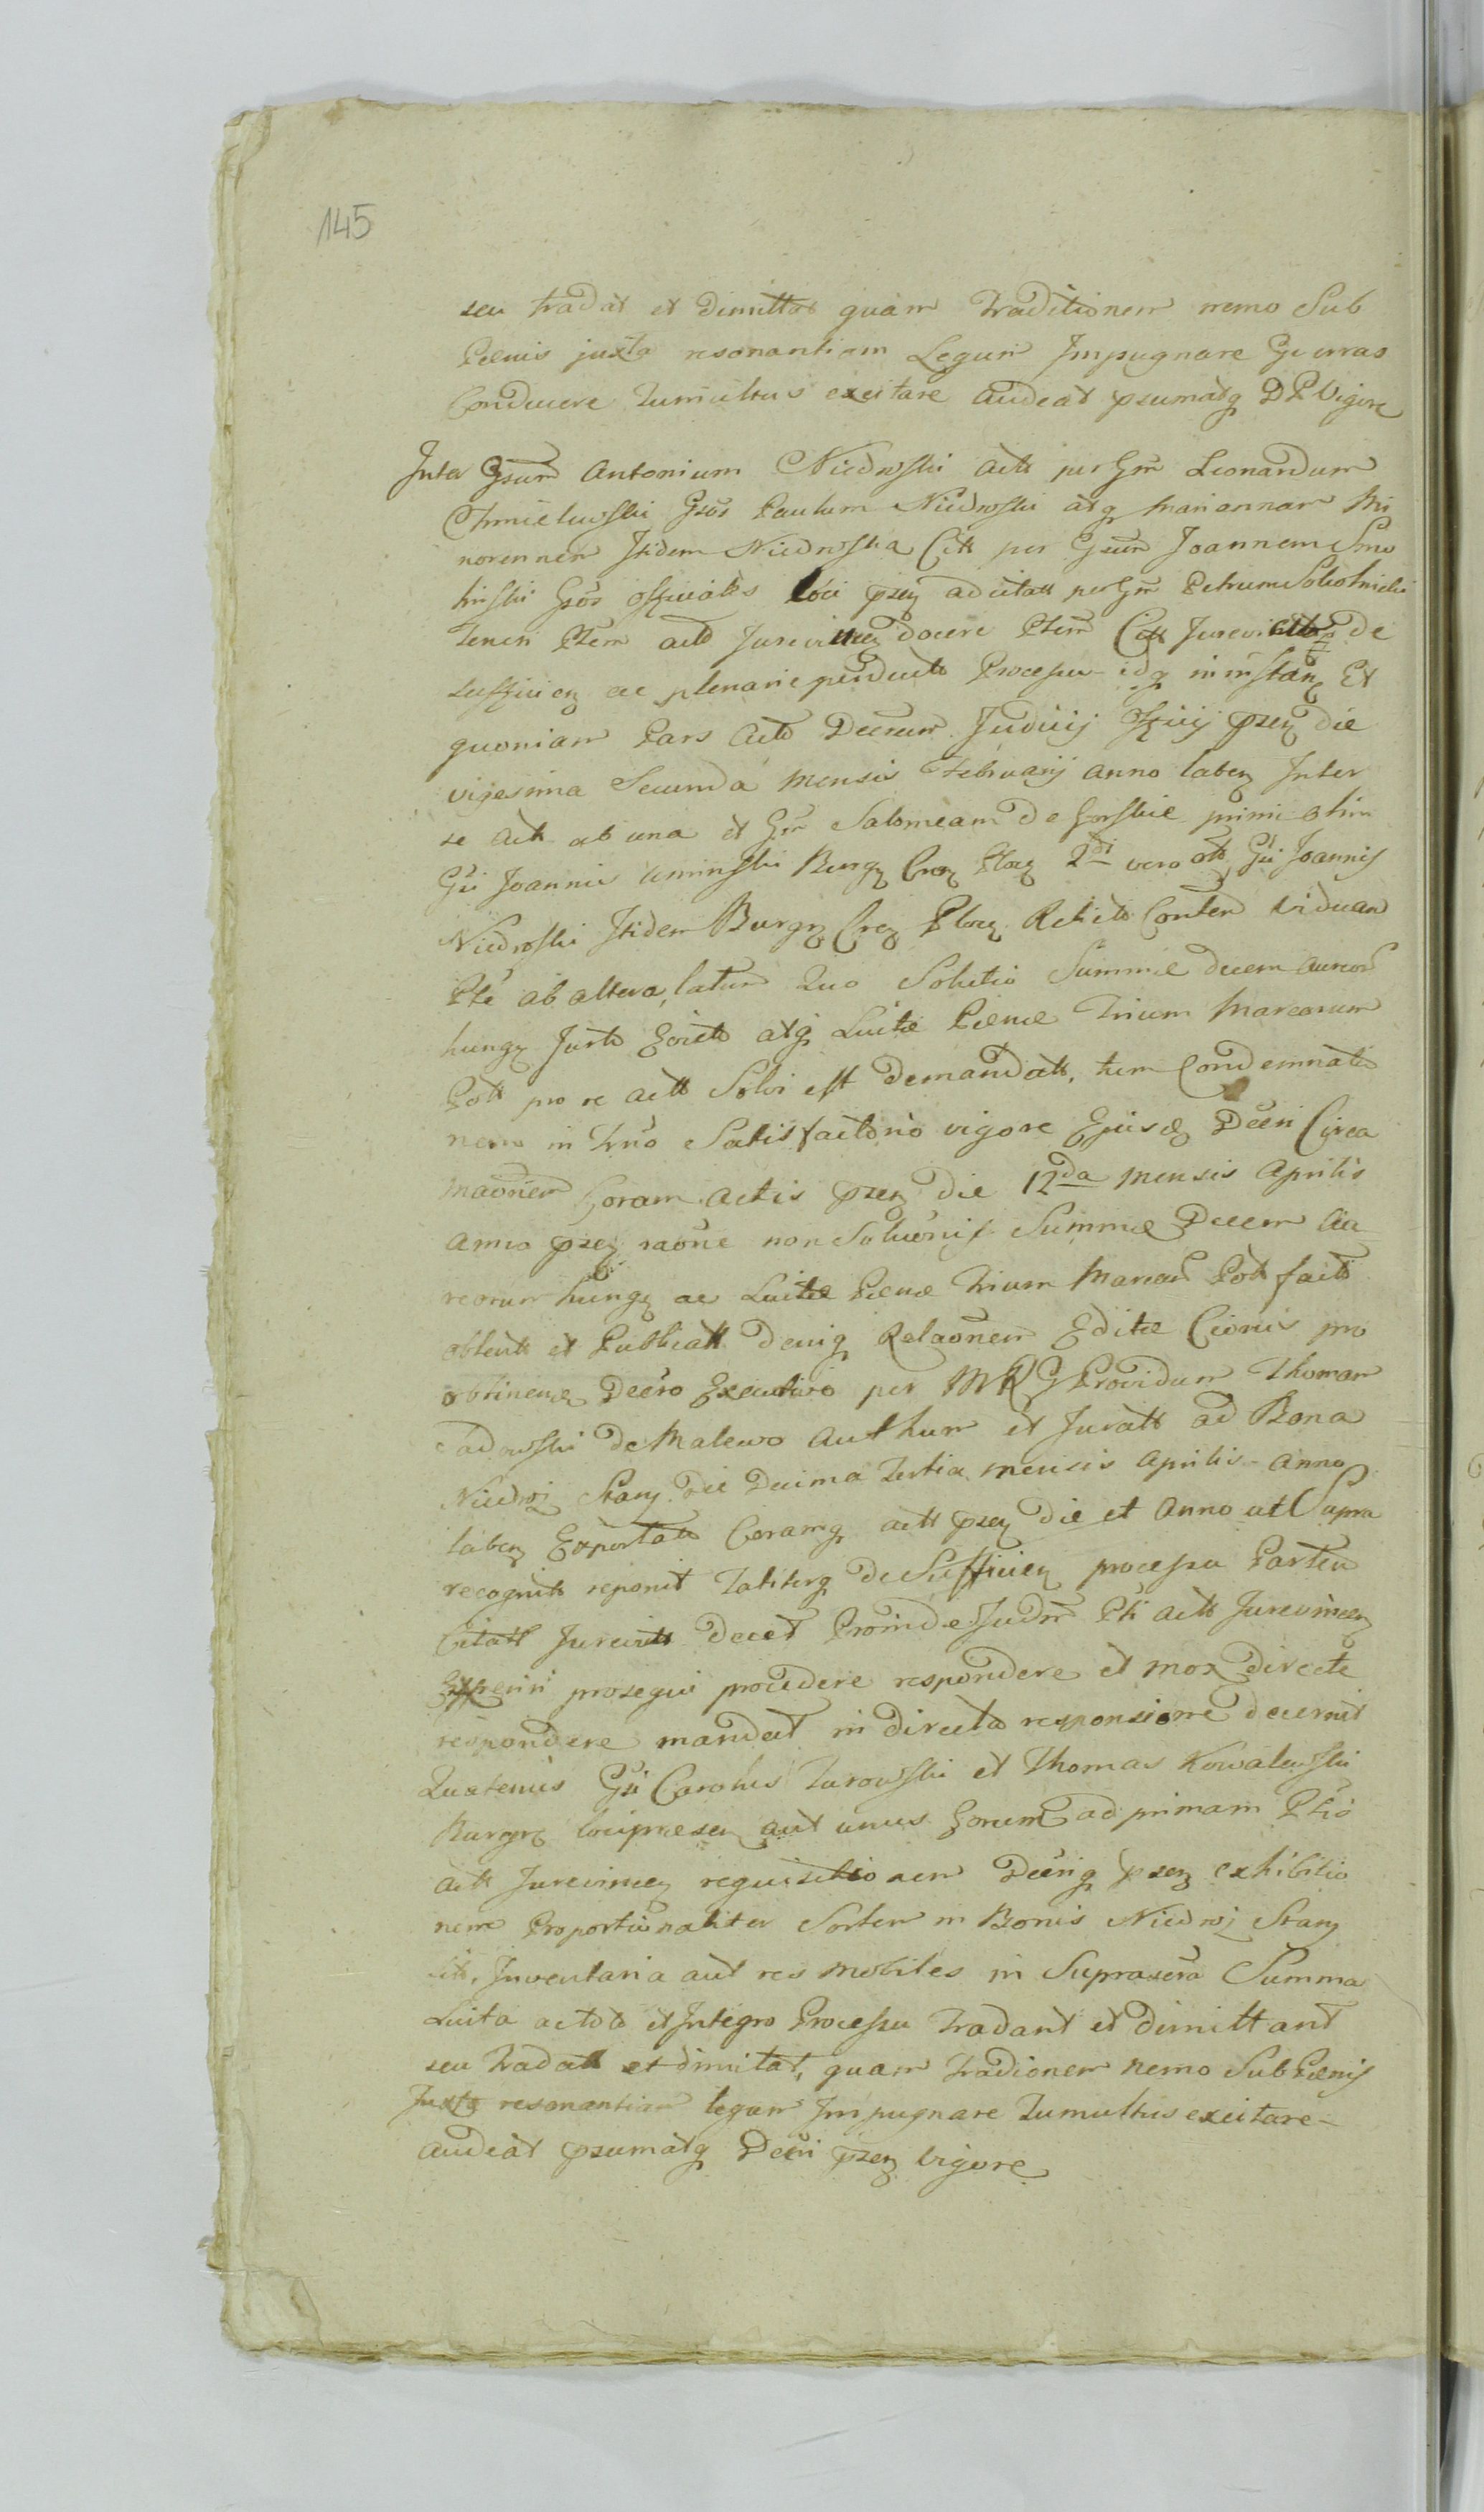 145
seu tradat et dimittat quam traditionem nemo Sub
Pænis juxta resonantiam Legum Impugnare Guerras
Conducere tumultus excitare audeat psumatq D P Vigore
Inter Gsum Antonium Niedroski actt per Gm Leonardum
Chmielewski Gsos Paulum Niedroski atq Mariannam Mi
norennem Itidem Niedroska Citt per Gsum Joannem Smo
linski Gsos Officiales loci psen adcitatt per Gm Petrum Sokolnicki
teneri Ptem actt Jurevincen docere Ptem Citt Jurevictt de
sufficien ac plenarie perducto Processu idq in instan Et
quoniam Pars Actt Decrum Judicij Officij psen die
vigesima Secunda Mensis Februarij anno laben Inter
se Actt ab una et Gm Salomeam de Gorskie primi olim
Gsi Joannis Uminski Burg Cren Ploc 2di vero ott Gsi Joannis
Niedroski Itidem Burg Cren Ploc Relictt Conten Viduam
Pte ab altera latum Quo Solutio Summæ decem aureor
hung Jurto Evictt atq Luitæ Pænæ Trium Marcarum
Poll pro re actt Solvi est demandatt, tum Condemnatio
nem in trno Satisfactorio vigore Ejusd Decri Circa
maonem Coram actis psen die 12da Mensis Aprilis
anno psen raone non Soluonis Summæ Decem Au
reorum hung ac Luitæ Pænæ Trium Marcar Poll factt
obtentt et Publicatt deniq Relaonem Editæ Cionis pro
obtinen Decro Executivo per M R G Providum Thomam
Sadowski de Malewo Authum et Juratt ad Bona
Niedroj Stary die Decima tertia mensis Aprilis Anno
laben Exportatt Coramq actt psen die et Anno ut Supra
recognitt reponit taliterq de Sufficien processu Partem
Citatt Jurevictt docet Proinde Judm Pti actt Jurevincen
Experiri prosequi procedere respondere et mox directe
respondere mandat in directa responsione decernit
Quatenus Gsi Carolus Turowski et Thomas Kowalewski
Burg loci præsen aut unus Eorum ad primam Ptis
actt Jurevincen requisitionem Decriq psen exhibitio
nem Proportionaliter Sortem in Bonis Niedroj Stary
sitt, Inventaria aut res mobiles in Suprascra Summa
Luita actoto et Integro Processu tradant et dimittant
seu tradatt et dimitat, quam tradionem nemo Sub Pænis
Juxta resonantiam legum Impugnare tumultus excitare
audeat psumatq Decri psen vigore